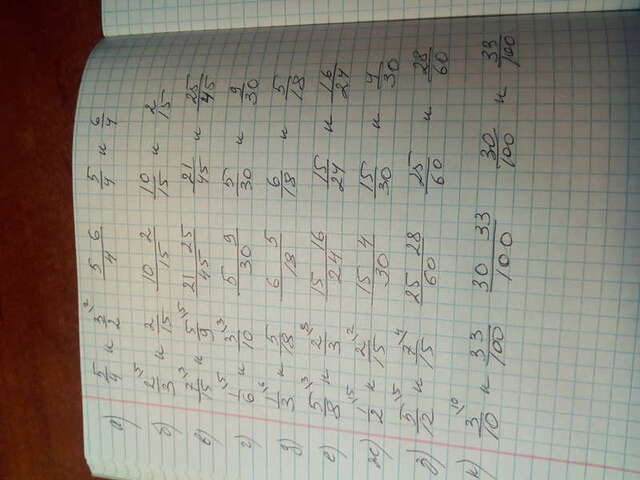 а) 5/4 и 3\2/2 5 6/4 5/4 и 6/4
б) 2\5/3 и 2/15 10 2/15 10/15 и 2/15
в) 7\3/15 и 5\5/9 21 25/45 21/45 и 25/45
г) 1\5/6 и 3\3/10 5 9/30 5/30 и 9/30
д) 1\6/3 и 5/18 6 5/18 6/18 и 5/18
е) 5\3/8 и 2\8/3 15 16/24 15/24 и 16/24
ж) 1\15/2 и 2\2/15 15 4/30 15/30 и 4/30
з) 5\5/12 и 7\4/15 25 28/60 25/60 и 28/60
и) 3\10/10 и 33/100 30 33/100 30/100 и 33/100